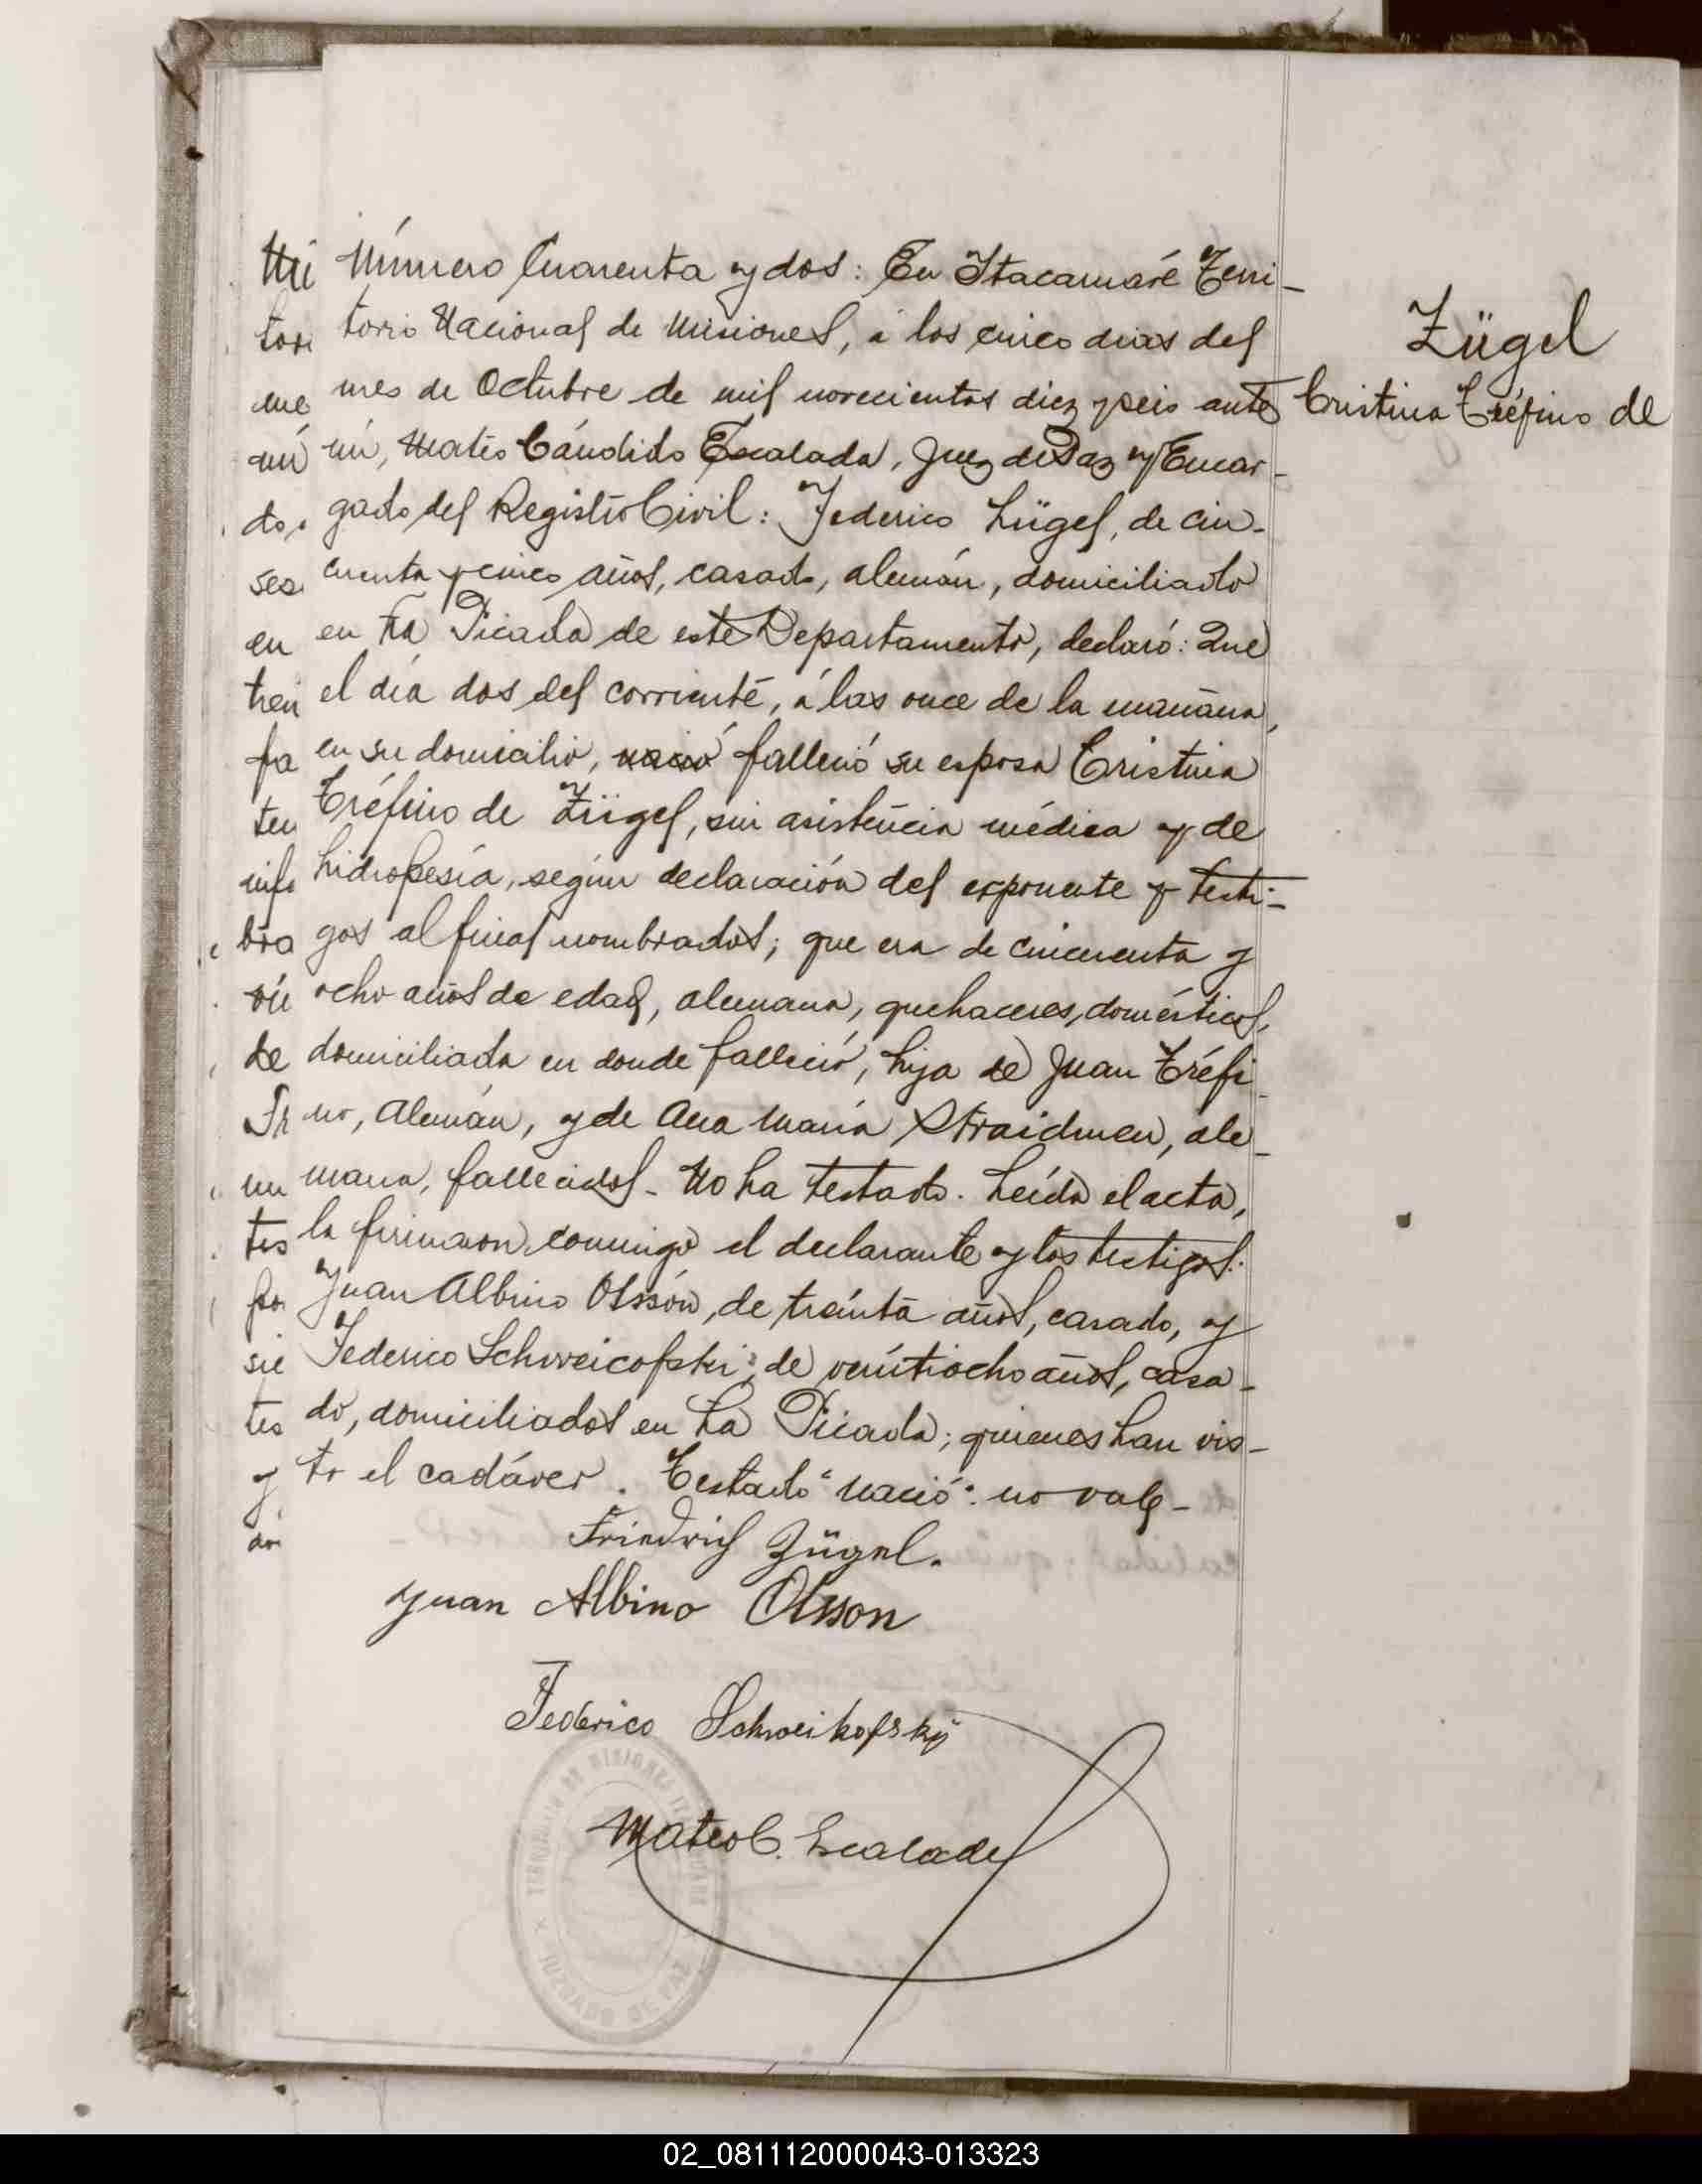 Número Cuarenta y dos: En Itacaruaré Terri-
torio Nacional de Misiones, á los cinco dias del
mes de Octubre de mil novecientos diez y seis ante
mí, Mateo Cándido Escalada, Juez de Paz y Encar-
gado del Registro Civil: Federico Zügel, de cin-
cuenta y cinco años, casado, alemán, domiciliado
en La Picada de este Departamento, declaró: Que
el día dos del corriente, á las once de la mañana,
en su domicilio, nació falleció su esposa Cristina
Tréfino de Zügel, sin asistencia médica y de
hidropesía, según declaración del exponente y testi-
gos al final nombrados; que era de cincuenta y
ocho años de edad, alemana, quehaceres domésticos,
domiciliada en donde falleció, hija de Juan Tréfi-
no, Alemán, y de Ana María Straidmen, ale-
mana, fallecidos. No ha testado. Leída el acta,
la firmaron conmigo el declarante y los testigos:
Juan Albino Olssón, de treinta años, casado, y
Federico Schweicofski, de veintiocho años, casa-
do, domiciliados en La Picada; quienes han vis-
to el cadáver. Testado "nació": no vale-
Friedrich Zügel.
Juan Albino Olsson
Federico Schweikofsky
Mateo C. Escalada
Zügel
Cristina Tréfino de
TERRITORIO DE MISIONES
JUZGADO DE PAZ
02_081112000043-013323